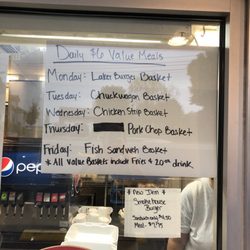 Daily $6 Value Meals
Monday: Burger Basket
Tuesday: Chuckwagon Basket
Wednesday: Chicken Strip Basket
Thursday: Pork Chop Basket
Friday: Fish Sandwich Basket
* All Value Baskets include Fries & 20oz drink
pepsi
* New Item *
Smokehouse
Burger
Sandwich only
Meal-